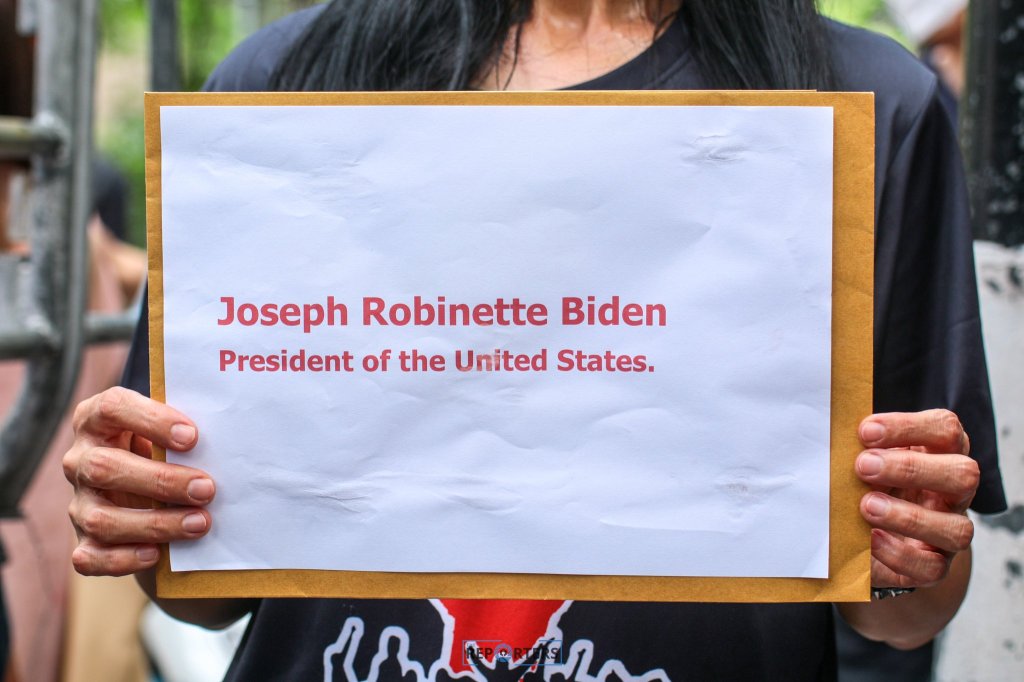 Joseph Robinette Biden
President of the United States.
REPORTERS